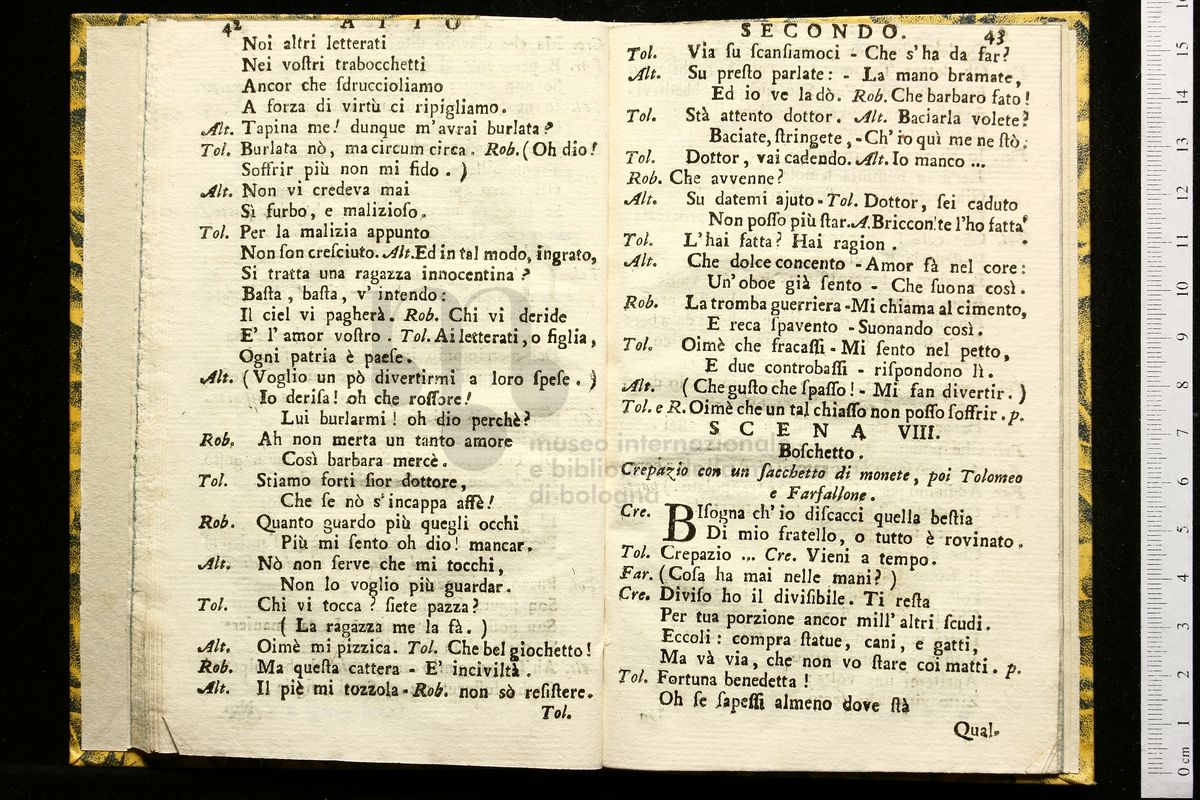 42 ATTO
Noi altri letterati
Nei voſtri trabocchetti
Ancor che ſdruccioliamo
A forza di virtù ci ripigliamo.
Alt. Tapina me! dunque m'avrai burlata?
Tol. Burlata nò, ma circum circa. Rob. (Oh dio!
Soffrir più non mi fido. )
Alt. Non vi credeva mai
Sì furbo, e malizioſo.
Tol. Per la malizia appunto
Non ſon creſciuto. Alt. Ed in tal modo, ingrato,
Si tratta una ragazza innocentina?
Baſta, baſta, v'intendo:
Il ciel vi pagherà. Rob. Chi vi deride
E' l'amor voſtro. Tol. Ai letterati, o figlia,
Ogni patria è paeſe.
Alt. (Voglio un pò divertirmi a loro ſpeſe. )
Io deriſa! oh che roſſore!
Lui burlarmi! oh dio perchè?
Rob. Ah non merta un tanto amore
Così barbara mercè.
Tol. Stiamo forti ſior dottore,
Che ſe nò s'incappa affè!
Rob. Quanto guardo più quegli occhi
Più mi ſento oh dio! mancar.
Alt. Nò non ſerve che mi tocchi,
Non lo voglio più guardar.
Tol. Chi vi tocca? ſiete pazza?
( La ragazza me la fà. )
Alt. Oimè mi pizzica. Tol. Che bel giochetto!
Rob. Ma queſta cattera - E' inciviltà.
Alt. Il piè mi tozzola - Rob. non sò reſiſtere.
Tol.
SECONDO. 43
Tol. Via ſu ſcanſiamoci - Che s'ha da far?
Alt. Su preſto parlate: - La mano bramate,
Ed io ve la dò. Rob. Che barbaro fato!
Tol. Stà attento dottor. Alt. Baciarla volete?
Baciate, ſtringete, - Ch'io quì me ne ſtò.
Tol. Dottor, vai cadendo. Alt. Io manco ...
Rob. Che avvenne?
Alt. Su datemi ajuto - Tol. Dottor, ſei caduto
Non poſſo più ſtar. A. Briccon! te l'ho fatta
Tol. L'hai fatta? Hai ragion.
Alt. Che dolce concento - Amor fà nel core:
Un'oboe già ſento - Che ſuona così.
Rob. La tromba guerriera - Mi chiama al cimento,
E reca ſpavento - Suonando così.
Tol. Oimè che fracaſſi - Mi ſento nel petto,
E due controbaſſi - riſpondono lì.
Alt. ( Che guſto che ſpaſſo! - Mi fan divertir. )
Tol. e R. Oimè che un tal chiaſſo non poſſo ſoffrir. p.
SCENA VIII.
Boſchetto.
Crepazio con un ſacchetto di monete, poi Tolomeo
e Farfallone.
Cre. BIſogna ch'io diſcacci quella beſtia
Di mio fratello, o tutto è rovinato.
Tol. Crepazio ... Cre. Vieni a tempo.
Far. (Coſa ha mai nelle mani? )
Cre. Diviſo ho il diviſibile. Ti reſta
Per tua porzione ancor mill'altri ſcudi.
Eccoli: compra ſtatue, cani, e gatti,
Ma và via, che non vo ſtare coi matti. p.
Tol. Fortuna benedetta!
Oh ſe ſapeſſi almeno dove ſtà
Qual-
museo internazionale
e biblio
di bologna